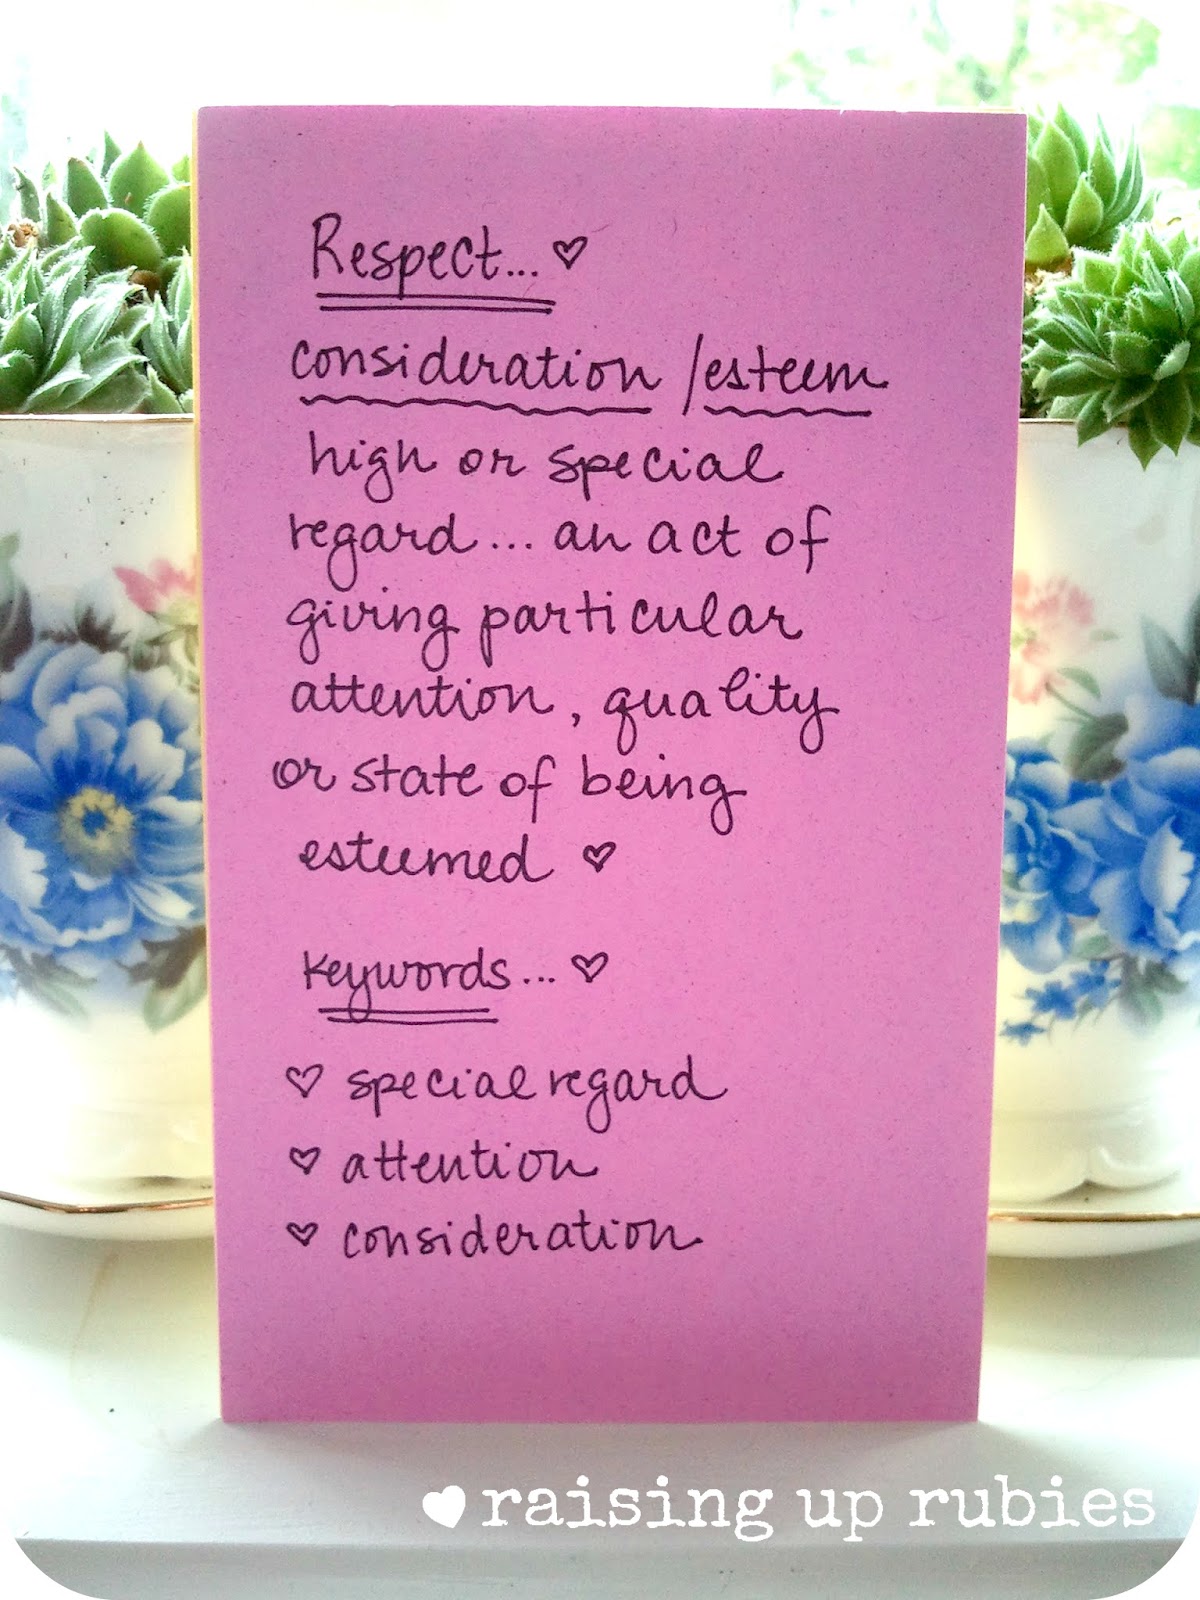 Respect... ♡
consideration /esteem
high or special
regard... an act of
giving particular
attention, quality
or state of being
esteemed ♡
Keywords... ♡
♡ special regard
♡ attention
♡ consideration
♥ raising up rubies